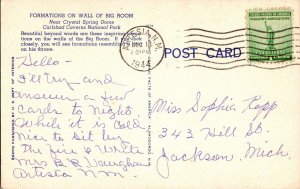 FORMATIONS ON WALL OF BIG ROOM
Near Crystal Spring Dome
Carlsbad Caverns National Park
Beautiful beyond words are these inspiring
tions on the walls of the Big Room. If you look
closely, you will see formations resembling
on his throne.
POST CARD
DEC 13
1944
N.M.
Hello -
I'll try and
answer a few
cards to night.
While it is cold
nice to sit by
the fire & write
Mrs B R Vaughan
Artesia NM
Miss Sophia Popp
343 Hill St.
Jackson, Mich.